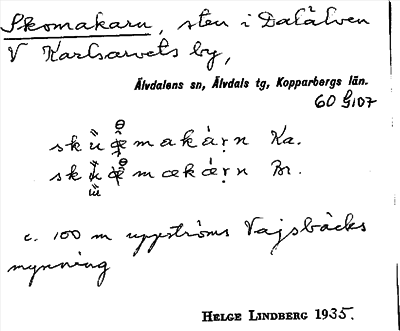 Skomakarn, sten i Dalälven
V Karlsarvets by,
Älvdalens sn, Älvdals tg, Kopparbergs län.
60 G 107
Ka.
Br.
c. 100 m uppströms Vajsbäcks
mynning
HELGE LINDBERG 1935.